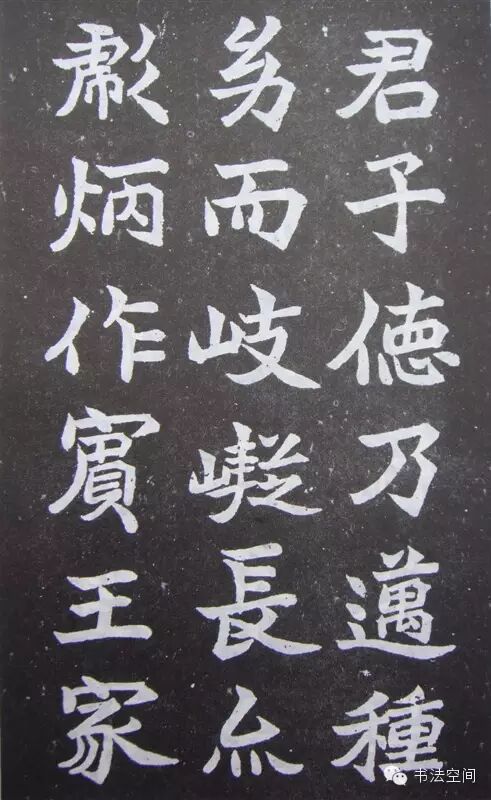 君子德乃邁種
幼而岐嶷長亦
彪炳作賓王家
书法空间